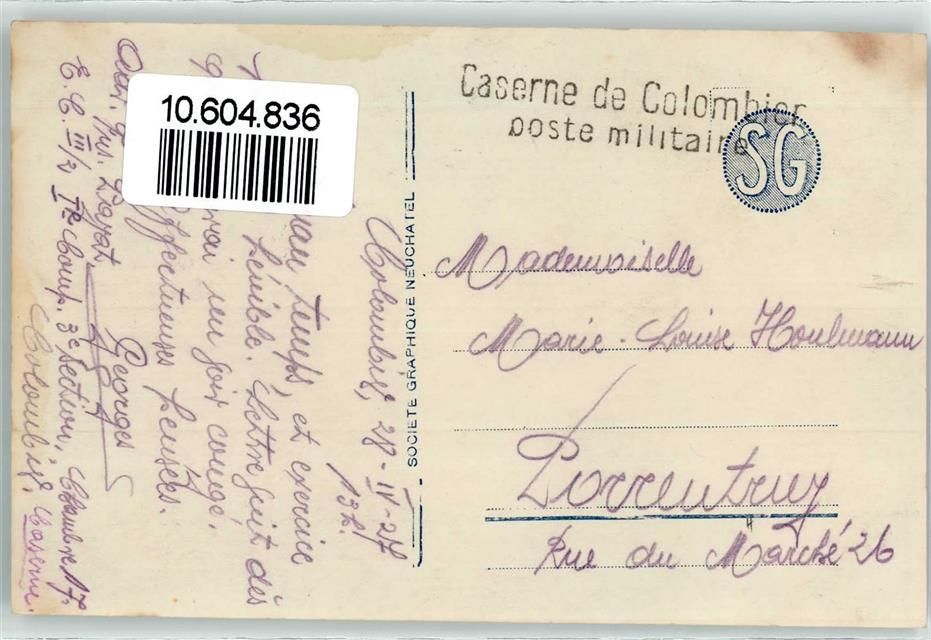 10.604.836
Caserne de Colombier
poste militaire
SG
Mademoiselle
Marie-Louise Houlmann
Porrentruy
Rue du Marché 26
SOCIETE GRAPHIQUE NEUCHATEL
Colombier, 28-IV-27
13h.
temps, et exercice
pénible. Lettre suit dès
un soir congé.
Affectueuses pensées.
Georges
E. C. III/2 Ie Comp. 3e Section, Chambre 17.
Colombier. Caserne.